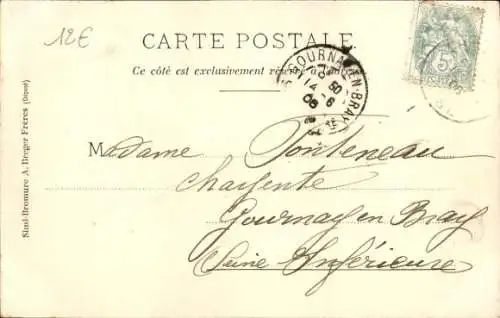 12€
CARTE POSTALE.
Ce côté est exclusivement réservé à l'adresse
GOURNAY-EN-BRAY
14 -6
06
5
Simil-Bromure A. Berger Frères (Déposé)
Madame Fonteneau
Charpente
Gournay en Bray
Seine-Inférieure